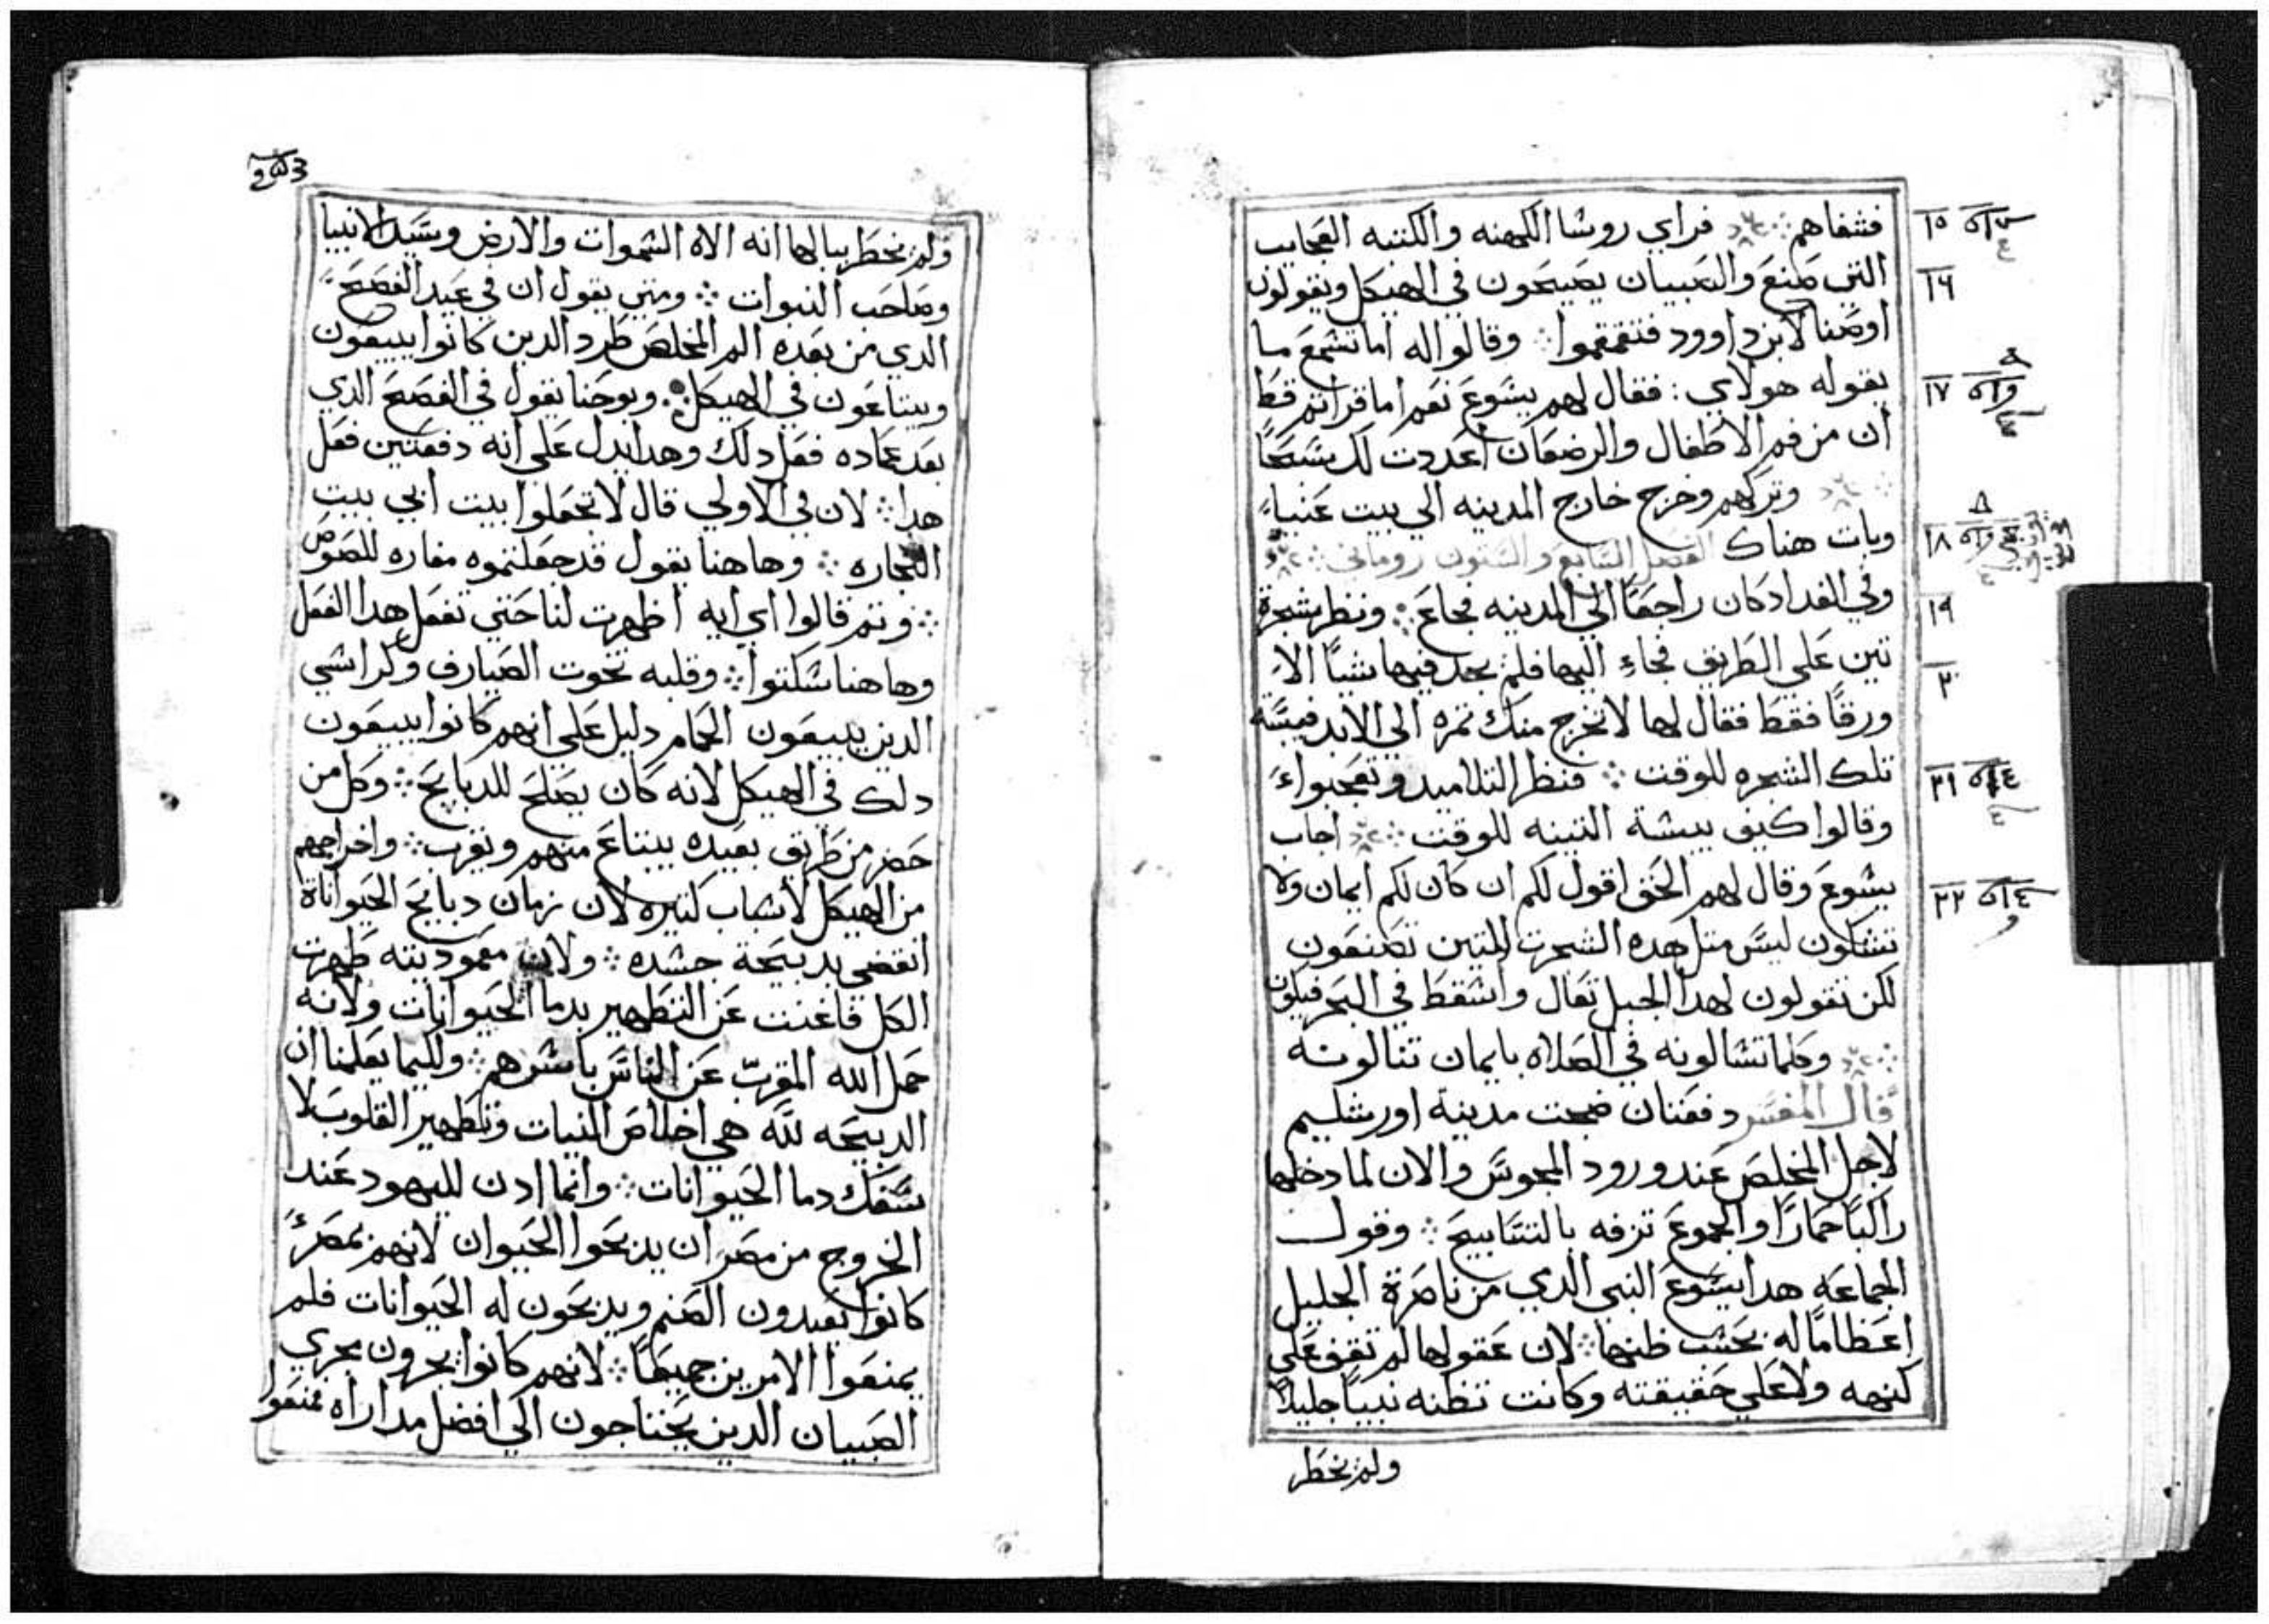 فشفاهم ⁘ فراي روسا الكهنه والكتبه العجايب
التي صنع والصبيان يصيحون في الهيكل ويقولون
اوصنا لابن داوود فتقمقموا ⁘ وقالوا له اما تسمع ما
يقوله هولاي : فقال لهم يسوع نعم اما قراتم قط
ان من فم الاطفال والرضعان اعددت لك سبحًا
⁘ وتركهم وخرج خارج المدينه الي بيت عنيا
وبات هناك الفصل السابع والستون روماني ⁘
وفي الغد اد كان راجعًا الي المدينه فجاع ⁘ ونظر شجرة
تين علي الطريق فجاء اليها فلم يجد فيها شيًا الا
ورقًا فقط فقال لها لا تخرج منك تمره الي الابد فيبسة
تلك الشجره للوقت ⁘ فنظر التلاميد وتعجبوا
وقالوا كيف يبسة التينه للوقت ⁘ اجاب
يسوع وقال لهم الحق اقول لكم ان كان لكم ايمان ولا
تشكون ليس متل هده الشجرت التين تصنعون
لكن تقولون لهدا الجبل تعال واسقط في البحر فيكون
⁘ وكلما تسالونه في الصلاه بايمان تنالونه
قال المفسر دفعتان ضجت مدينة اورشليم
لاجل المخلص عند ورود المجوس والان لما دخلها
راكبًا حمارًا والجموع تزفه بالتسابيح ⁘ وقول
الجماعه هدا يسوع النبي الدي من ناصرة الجليل
اعظامًا له بحسب ظنها ⁘ لان عقولها لم تقف علي
كنهه ولا علي حقيقته وكانت تظنه نبيًا جليلاً
ولم يخطر
١٥
١٦
١٧
١٨
١٩
٢٠
٢١
٢٢
ولم يخطر ببالها انه الاه السموات والارض وسيد الانبيا
وصاحب النبوات ⁘ ومتي يقول ان في عيد الفصح
الدي من بعده الم المخلص طرد الدين كانوا يبيعون
ويبتاعون في الهيكل ⁘ ويوحنا يقول في الفصح الدي
بعد عماده فعل دلك وهدا يدل علي انه دفعتين فعل
هدا ⁘ لان في الاولي قال لا تجعلوا بيت ابي بيت
التجاره ⁘ وهاهنا يقول قد جعلتموه مغاره للصوص
⁘ وتم قالوا اي ايه اظهرت لنا حتي تفعل هدا الفعل
وهاهنا سكتوا ⁘ وقلبه تخوت الصيارف وكراسي
الدين يبيعون الحمام دليل علي انهم كانوا يبيعون
دلك في الهيكل لانه كان يصلح للدبايح ⁘ وكل من
حضر من طريق بعيده يبتاع منهم ويقرب ⁘ واخراجهم
من الهيكل لاسباب كتيره لان زمان دبايح الحيواناة
انقضي بدبيحة جسده ⁘ ولان معموديته طهرت
الكل فاغنت عن التطهير بدما الحيوانات ولانه
حمل الله المقرب عن الناس باسرهم ⁘ ولكيما يعلمنا ان
الدبيحه لله هي اخلاص النيات وتطهير القلوب لا
سفك دما الحيوانات ⁘ وانما ادن لليهود عند
الخروج من مصر ان يدبحوا الحيوان لانهم بمصر
كانوا يعبدون الصنم ويدبحون له الحيوانات فلم
يمنعوا الامرين جميعًا ⁘ لانهم كانوا يجرون مجري
الصبيان الدين يحتاجون الي افضل مداراه فمنعوا